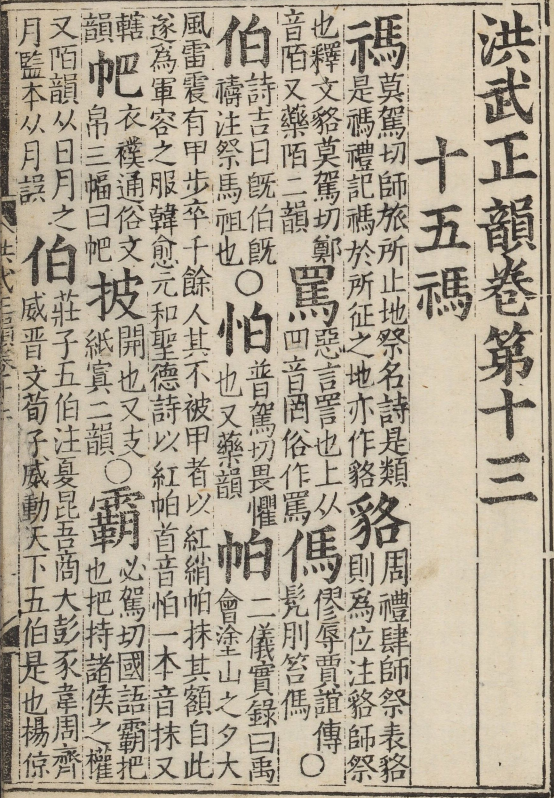 洪武正韻卷第十三
十五禡
禡莫駕切師旅所止地祭名詩是類是禡禮記禡於所征之地亦作貉貉周禮肆師祭表貉則為位注貉師祭
也釋文貉莫駕切鄭音陌又藥陌二韻罵惡言詈也上从四音罔俗作罵傌僇辱賈誼傳髡刖笞傌〇
伯詩吉日旣伯旣禱注祭馬祖也〇怕普駕切畏懼也又藥韻帕二儀實錄曰禹會塗山之夕大
風雷震有甲步卒千餘人其不被甲者以紅綃帕抹其額自此遂為軍容之服韓愈元和聖德詩以紅帕首音怕一本音抹又
轄韻帊衣襆通俗文帛三幅曰帊披開也又支紙寘二韻〇霸必駕切國語霸把也把持諸侯之權
又陌韻从日月之月監本从月誤伯莊子五伯注夏昆吾商大彭豕韋周齊威晋文荀子威動天下五伯是也楊倞